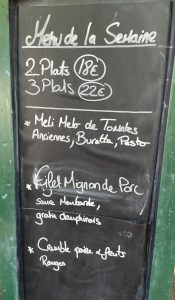 Menu de la Semaine
2 Plats 18€
3 Plats 22€
* Meli Melo de Tomates
Anciennes, Buratta, Pesto
* Filet Mignon de Porc
sauce Moutarde,
gratin dauphinois
* Crumble poire & fruits
Rouges